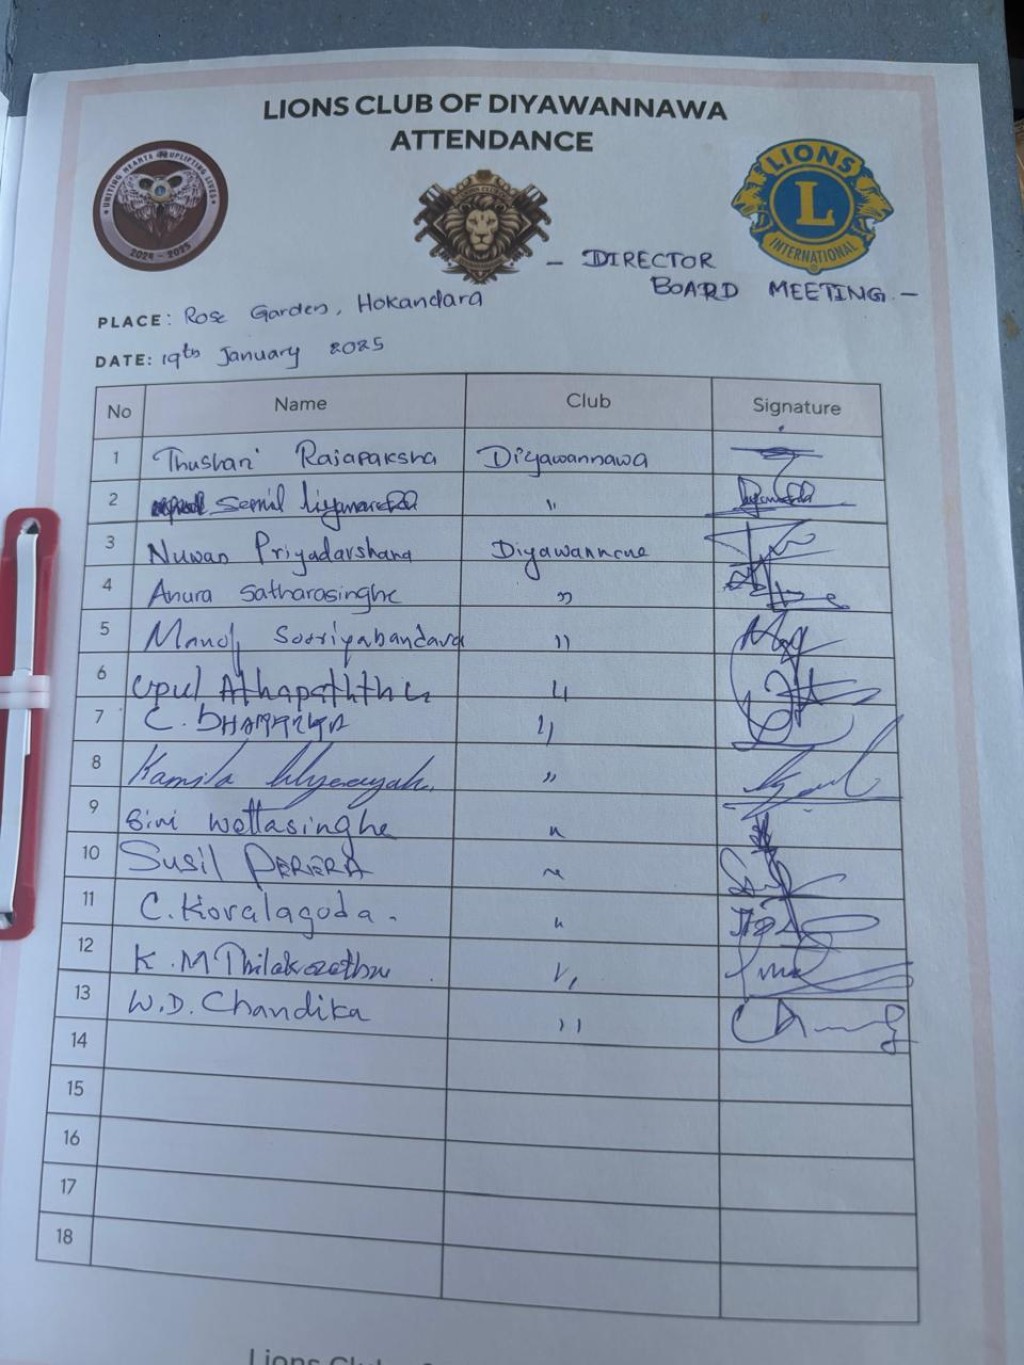 LIONS CLUB OF DIYAWANNAWA
ATTENDANCE
UNITING HEARTS UPLIFTING LIVES
2024 - 2025
LIONS
L
INTERNATIONAL
- DIRECTOR
BOARD MEETING -
PLACE: Rose Garden, Hokandara
DATE: 19th January 2025
No Name Club Signature
1 Thushari Rajapaksha Diyawannawa
2 Semil "
3 Nuwan Priyadarshana Diyawannawa
4 Anura Satharasinghe "
5 Manoj Sooriyabandara "
6 Upul Athapaththu "
7 C. "
8 Kamila "
9 Siri Wettasinghe "
10 Susil PERERA "
11 C. Koralagoda. "
12 K.M Thilakarathna "
13 W.D. Chandika "
14
15
16
17
18
Lions